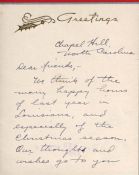 Greetings
Chapel Hill,
North Carolina
Dear friends,
We think of the
many happy hours
of last year in
Louisiana, and
especially of the
Christmas season.
Our thoughts and
wishes go to you